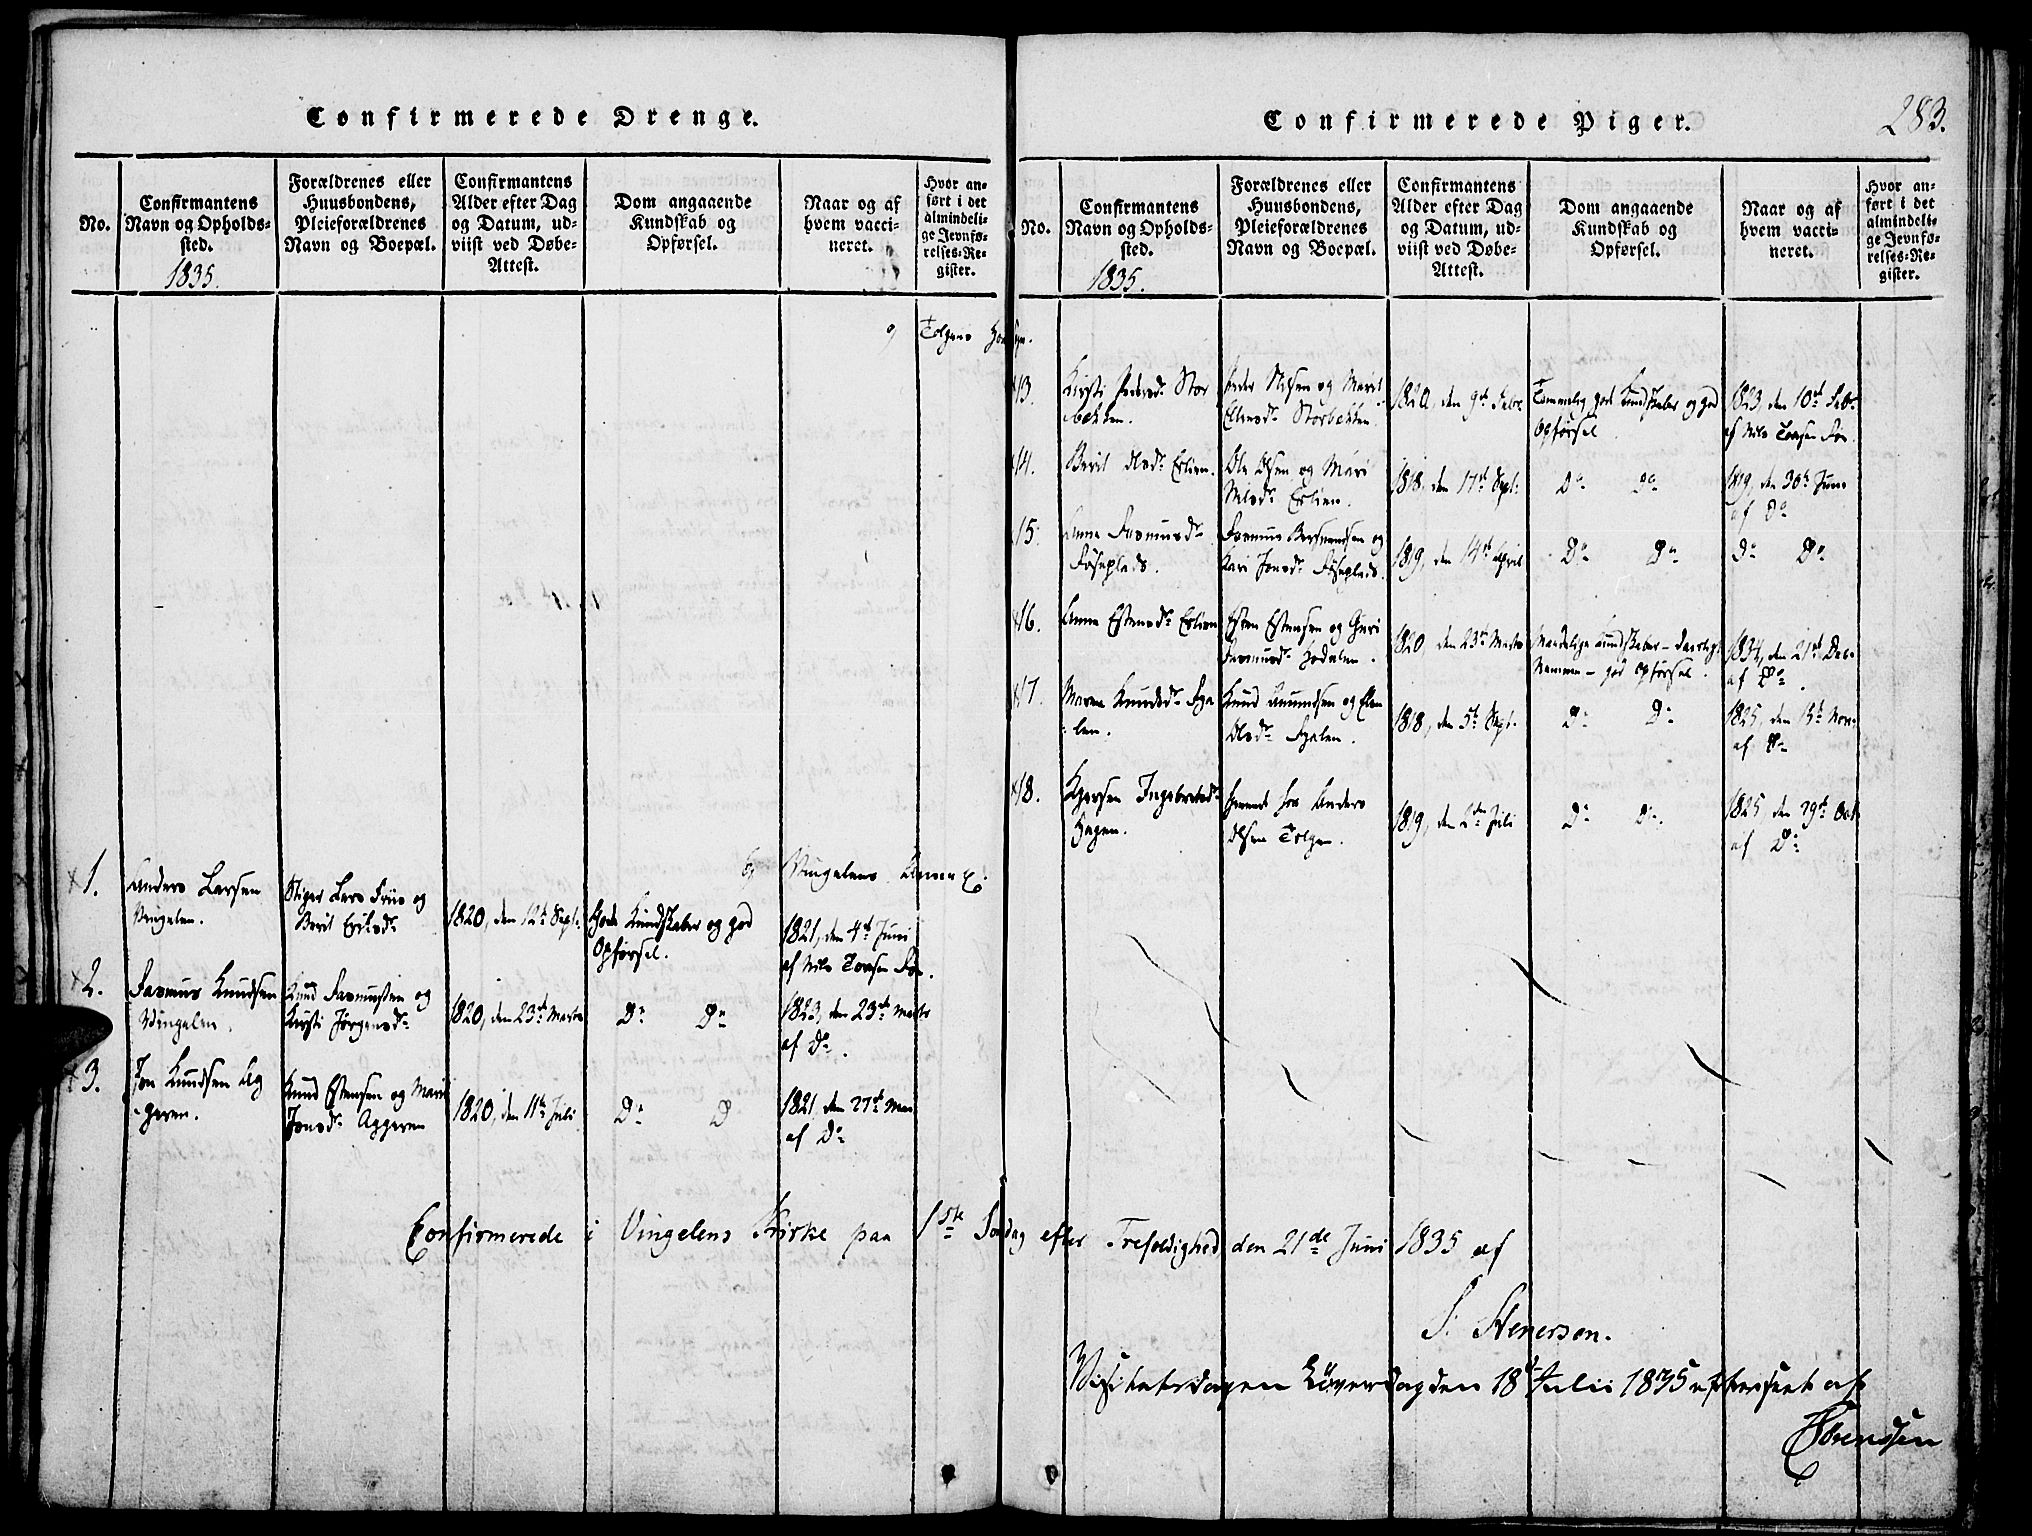 Confirmerede Drenge.
No.
Confirmantens
Navn og Opholds-
sted.
1835.
Forældrenes eller
Huusbondens,
Pleieforældrenes
Navn og Boepæl.
Confirmantens
Alder efter Dag
og Datum, ud-
viist ved Døbe-
Attest.
Dom angaaende
Kundskab og
Opførsel.
Naar og af
hvem vacci-
neret.
Hvor an-
ført i det
almindeli-
ge Jevnfø-
relses-Re-
gister.
Vingelens
1.
Anders Larsen
Vingelen.
Stiger Lars Friis og
Berit Eriksd.
1820, den 12te Sept.
Gode Kundskaber og god
Opførsel.
1821, den 4de Juni
af Nils Toasen
2.
Rasmus Knudsen
Vingelen.
Knud Rasmussen og
Kirsti Jørgensd.
1820, den 23de Marts
Do Do
1823, den 23de Marts
af Do.
3.
Jon Knudsen Ag
geren.
Knud Estensen og Mari
Jonsd. Aggeren
1820, den 11te Juli
Do D
1821, den 27de Mai
af Do
Confirmerede Piger.
283.
No.
Confirmantens
Navn og Opholds-
sted.
1835.
Forældrenes eller
Huusbondens,
Pleieforældrenes
Navn og Boepæl.
Confirmantens
Alder efter Dag
og Datum, ud-
viist ved Døbe-
Attest.
Dom angaaende
Kundskab og
Opførsel.
Naar og af
hvem vacci-
neret.
Hvor an-
ført i det
almindeli-
ge Jevnfø-
relses-Re-
gister.
Tolgens
13.
Kirsti Pedersd. Stor
bekken.
Peder Nilsen og Marit
Ellensd. Storbekken.
1820, den 9de Febr.
Temmelig gode Kundskaber og god
Opførsel.
1823, den 10de Febr.
af Nils Toasen
14.
Berit Olsd. Erlien.
Ole Olsen og Mari
Nilsd. Erlien.
1818, den 17de Sept.
Do Do
1819, den 30te Juni
af Do
15.
Anne Rasmusd.
Føseplads.
Rasmus Bersvendsen og
Kari Jonsd. Føseplads.
1819, den 14de April
Do Do
Do Do
16.
Anne Estensd. Erlien
Esten Estensen og Guri
Rasmusd. Hodalen.
1820 den 23de Marts
Maadelige Kundskaber – daarligt
Nemme – god Opførsel.
1834, den 21de Dec.
af Do.
17.
Maren Knudsd.
len.
Knud Amundsen og Elen
Olsd.
1818, den 5te Sept.
Do Do
1825, den 15te Nov.
af Do
18.
Kjersten Ingebretsd.
Hagen.
tjenende hos Anders
Olsen Tolgen.
1819, den 2den Juli
Do Do.
1825 den 29de Oct.
af Do
Confirmerede i Vingelens Kirke paa 1ste Søndag efter Trefoldighed den 21de Juni 1835 af
S. Stenersen.
Visitatsdagen Løverdag den 18d Julii 1835 efterseet af
Sørenssen